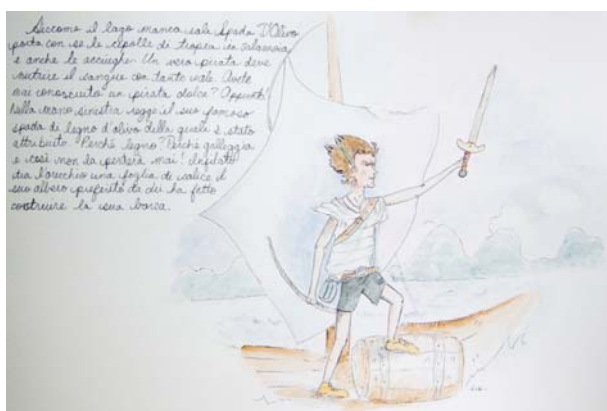 Siccome il lago manca sale Spada D'Olivo
porta con se le cipolle di tropea in salamoia
e anche le acciughe. Un vero pirata deve
nutrire il sangue con tanto sale. Avete
mai conosciuto un pirata dolce? Appunto!
Nella mano sinistra regge il suo famoso
spada di legno d'olivo della quale è stato
attribuito. Perchè legno? Perchè galleggia
e così non la perderà mai! Infilato
tra l'orecchio una foglia di salice il
suo albero preferito da cui ha fatto
costruire la sua barca.